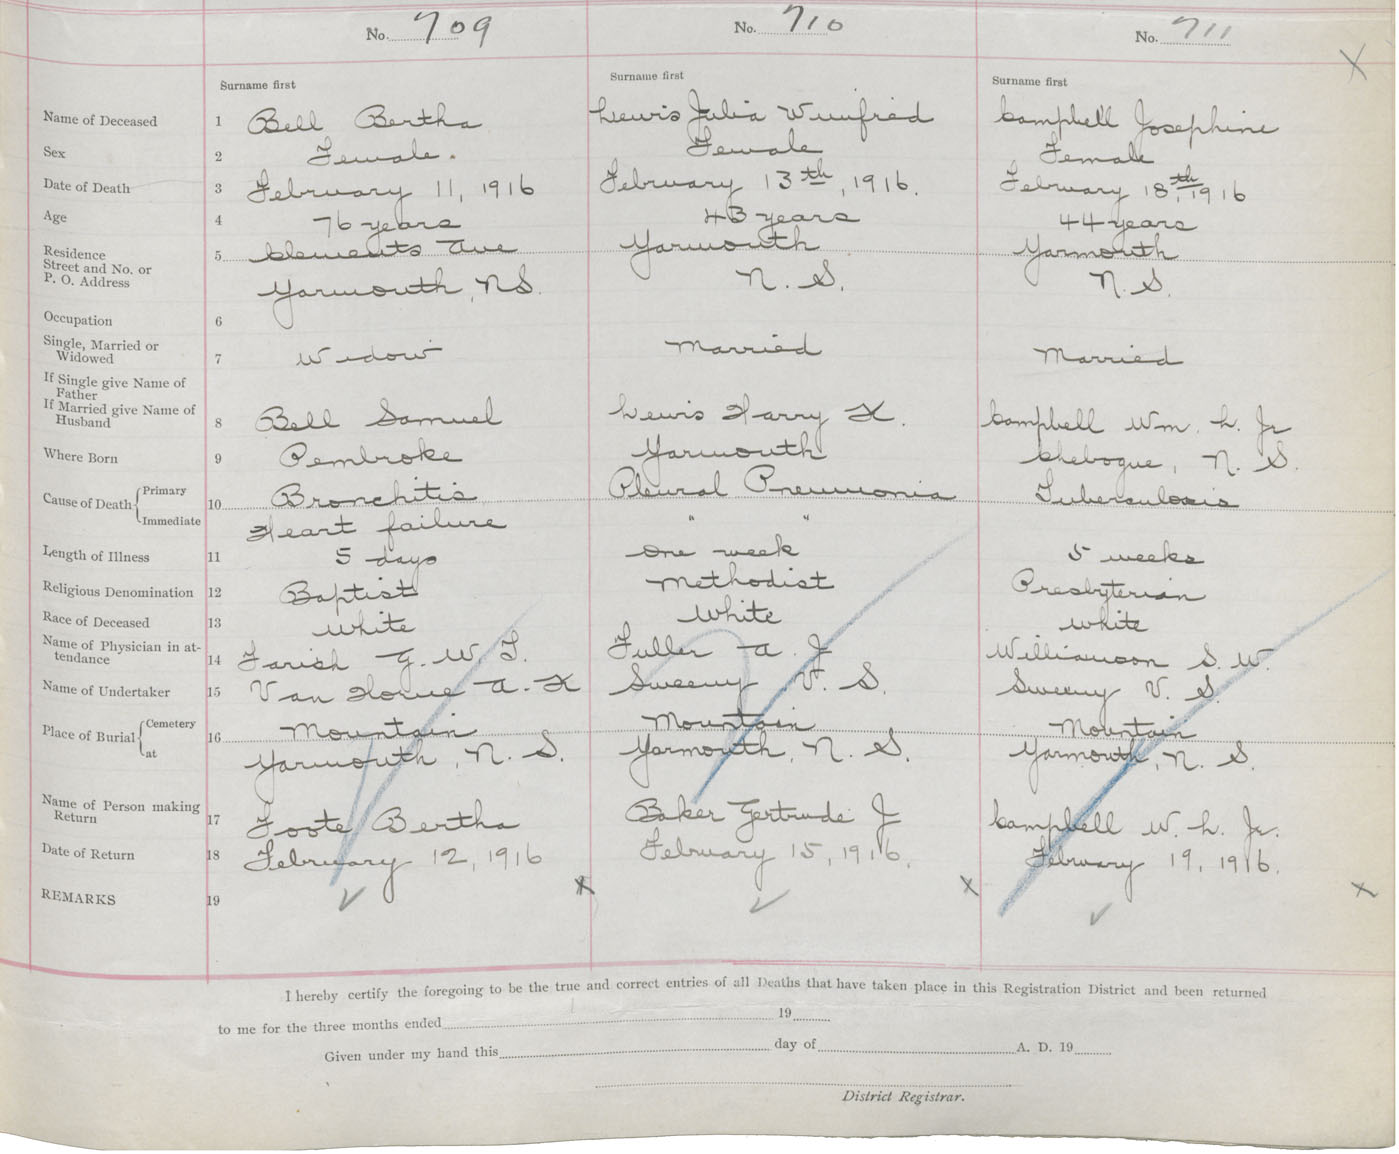 No. 709 No. 710 No. 711
Surname first Surname first Surname first
Name of Deceased 1 Bell Bertha Lewis Julia Winifred Campbell Josephine
Sex 2 Female. Female Female
Date of Death 3 February 11, 1916 February 13th, 1916. February 18th, 1916
Age 4 76 years 43 years 44 years
Residence 5 Clements Ave Yarmouth Yarmouth
Street and No. or
P. O. Address Yarmouth, NS. N. S. N. S.
Occupation 6
Single, Married or
Widowed 7 Widow Married Married
If Single give Name of
Father
If Married give Name of
Husband 8 Bell Samuel Lewis Harry K. Campbell Wm. L. Jr
Where Born 9 Pembroke Yarmouth Chebogue, N. S.
Cause of Death Primary 10 Bronchitis Pleural Pneumonia Tuberculosis
Immediate Heart failure " "
Length of Illness 11 5 days One week 5 weeks
Religious Denomination 12 Baptist Methodist Presbyterian
Race of Deceased 13 White White White
Name of Physician in at-
tendance 14 Farish G. W. T. Fuller A. J Williamson S. W.
Name of Undertaker 15 Van Horne A. K Sweeny V. S. Sweeny V. S.
Place of Burial Cemetery 16 Mountain Mountain Mountain
at Yarmouth, N. S. Yarmouth, N. S. Yarmouth, N. S.
Name of Person making
Return 17 Foote Bertha Baker Gertrude J Campbell W. L. Jr.
Date of Return 18 February 12, 1916 February 15, 1916. February 19, 1916.
REMARKS 19
I hereby certify the foregoing to be the true and correct entries of all Deaths that have taken place in this Registration District and been returned
to me for the three months ended 19
Given under my hand this day of A. D. 19
District Registrar.